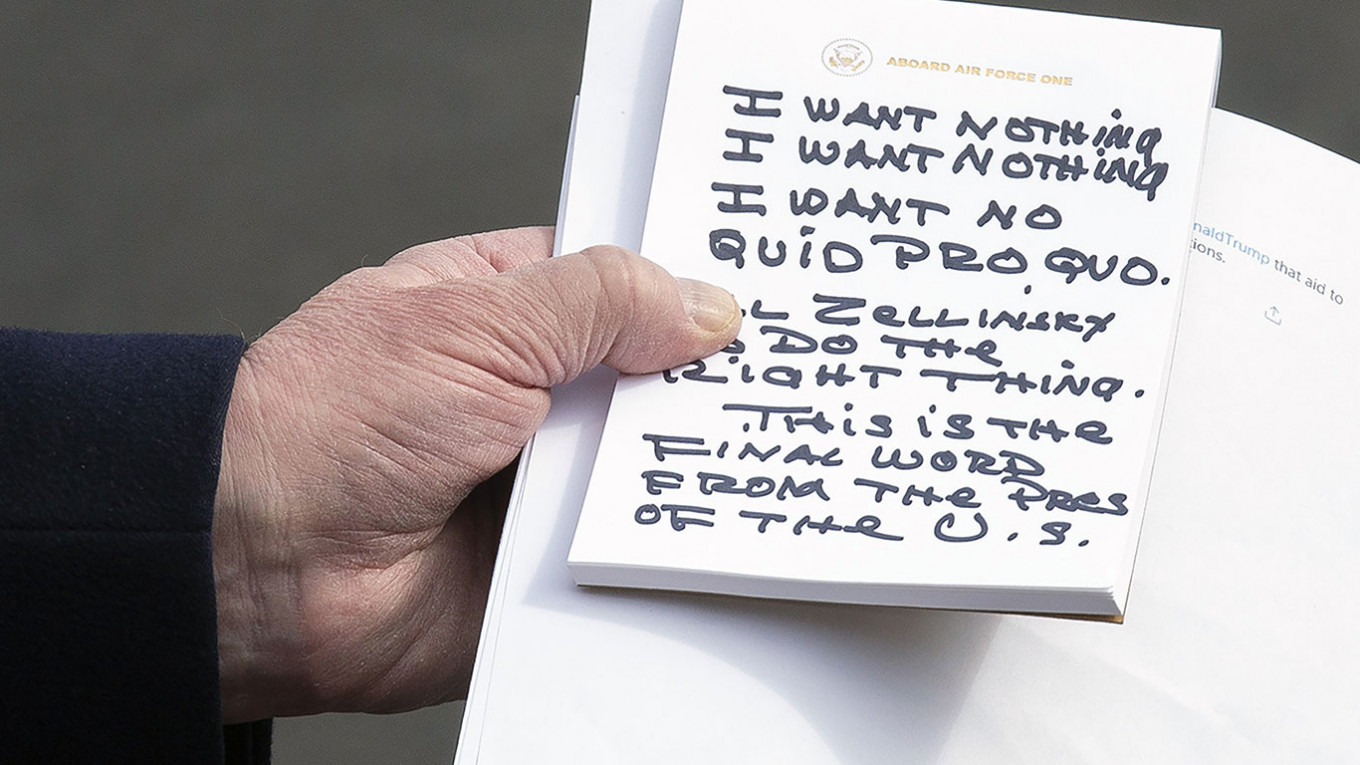 ABOARD AIR FORCE ONE
I WANT NOTHING
I WANT NOTHING
I WANT NO
QUID PRO QUO.
ZELLINSKY
DO THE
RIGHT THING.
.THIS IS THE
FINAL WORD
FROM THE PRES
OF THE U.S.
naldTrump that aid to
ions.